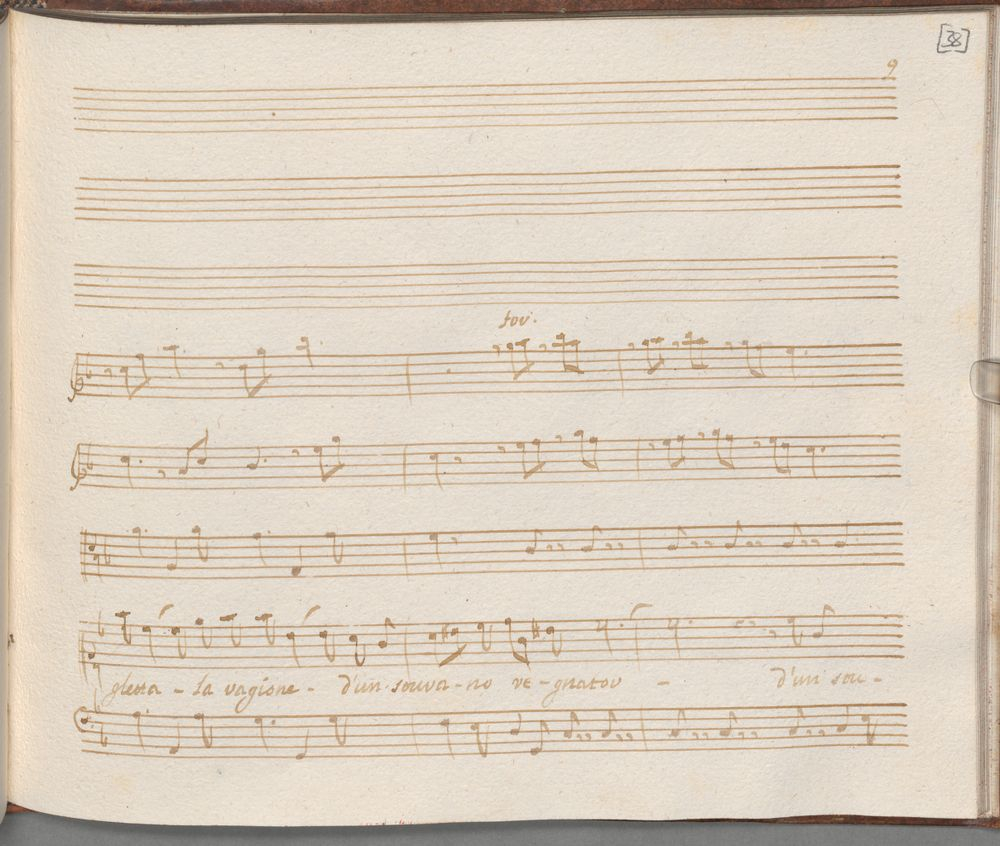 [38]
9
for.
gletta - la ragione - d'un soura - no re - gnator - d'un sou -